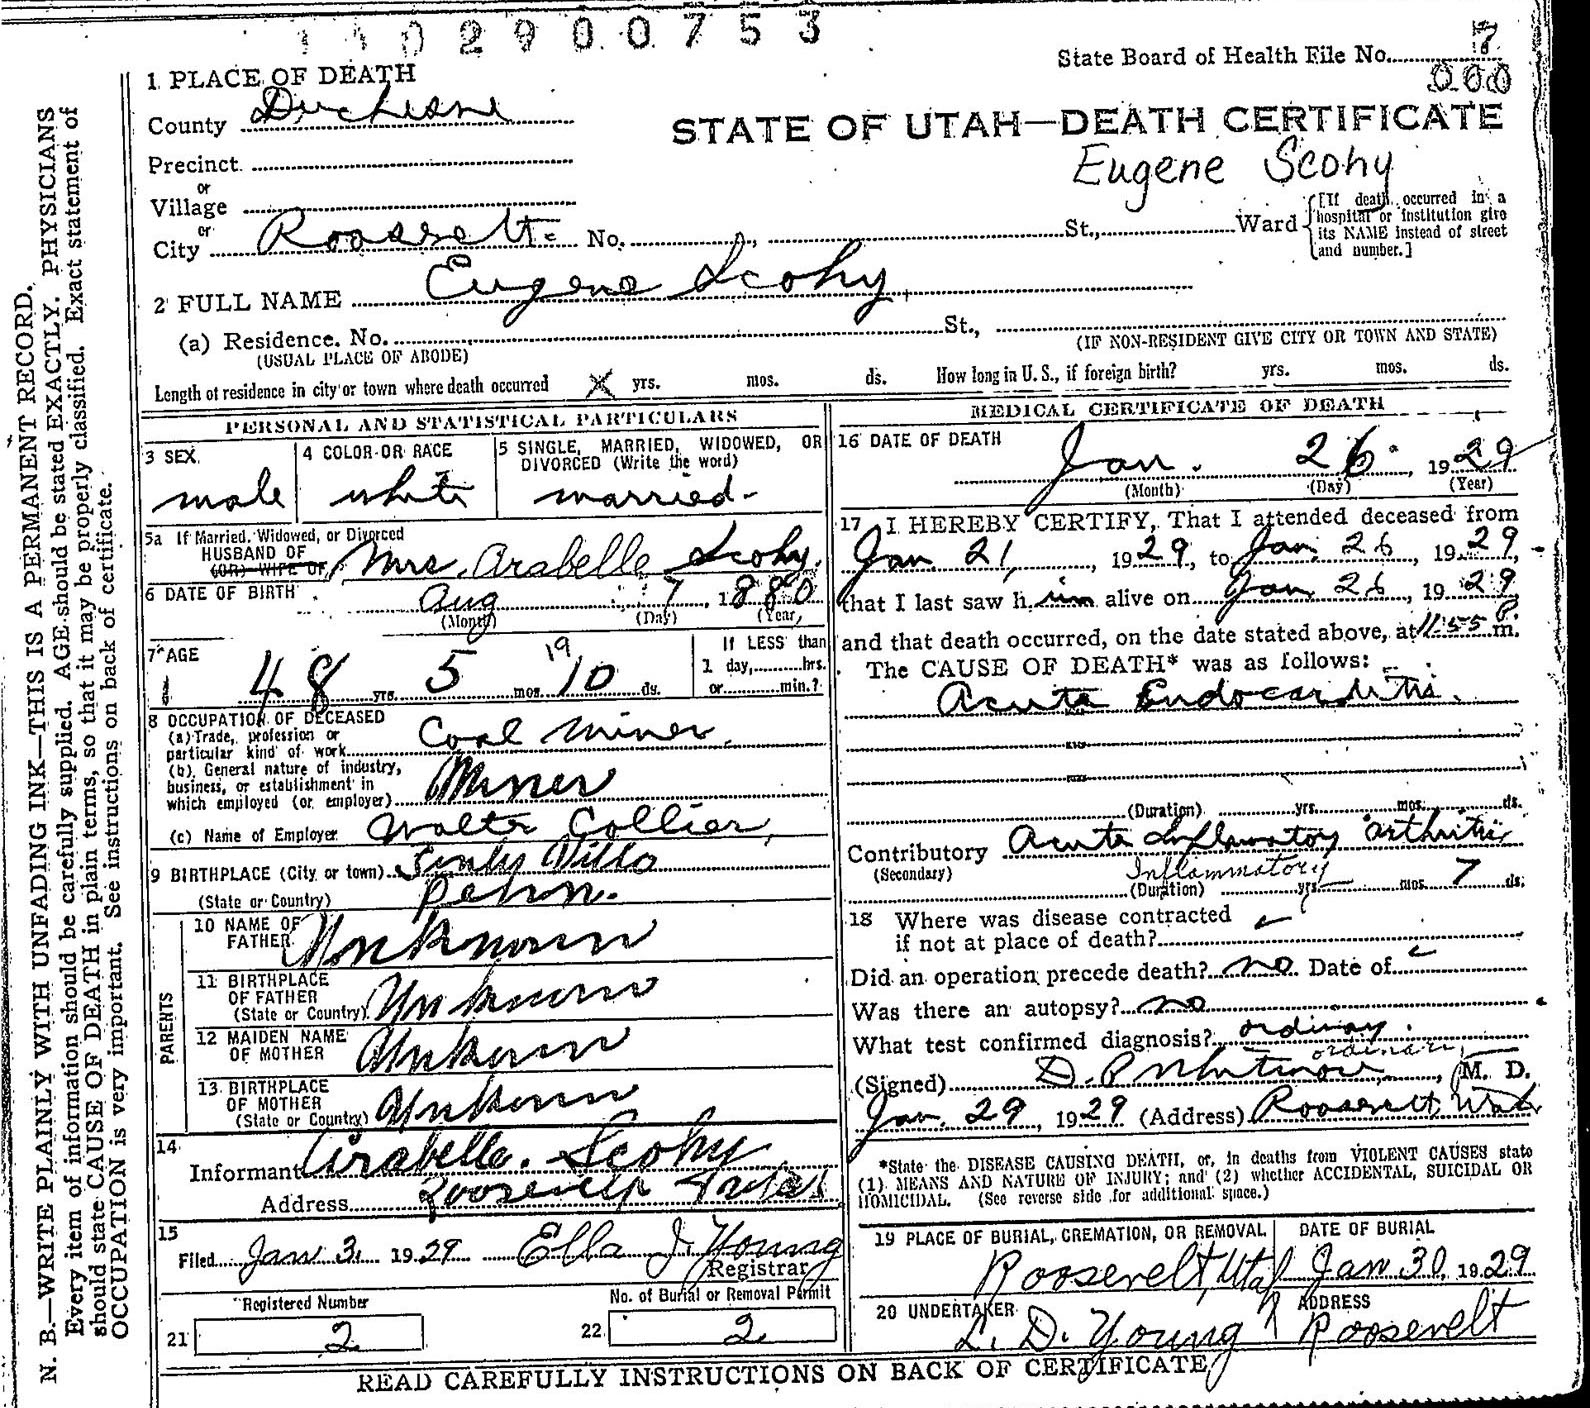 2900753
State Board of Health File No. 7
000
1 PLACE OF DEATH
County Duchesne
STATE OF UTAH—DEATH CERTIFICATE
Eugene Scohy
Precinct
or
Village
or
City Roosevelt No. St., Ward
[If death occurred in a hospital or institution give its NAME instead of street and number.]
2 FULL NAME Eugene Scohy
(a) Residence. No. St.,
(USUAL PLACE OF ABODE) (IF NON-RESIDENT GIVE CITY OR TOWN AND STATE)
Length of residence in city or town where death occurred X yrs. mos. ds. How long in U. S., if foreign birth? yrs. mos. ds.
PERSONAL AND STATISTICAL PARTICULARS
3 SEX
male
4 COLOR OR RACE
white
5 SINGLE, MARRIED, WIDOWED, OR DIVORCED (Write the word)
married
5a If Married, Widowed, or Divorced
HUSBAND OF
(OR) WIFE OF Mrs. Arabelle Scohy.
6 DATE OF BIRTH Aug 7, 1880
(Month) (Day) (Year)
7 AGE
48 yrs. 5 mos. 19 10 ds.
If LESS than
1 day, hrs.
or min.?
8 OCCUPATION OF DECEASED
(a) Trade, profession or
particular kind of work Coal Miner.
(b) General nature of industry,
business, or establishment in
which employed (or employer) Miner
(c) Name of Employer Walter Collier,
9 BIRTHPLACE (City or town)
(State or Country) Penn.
PARENTS
10 NAME OF
FATHER Unknown
11 BIRTHPLACE
OF FATHER
(State or Country) Unknown
12 MAIDEN NAME
OF MOTHER Unknown
13 BIRTHPLACE
OF MOTHER
(State or Country) Unknown
14
Informant Arabelle Scohy
Address Roosevelt Utah
15
Filed Jan 3. 1929 Ella J. Young
Registrar
Registered Number
21 2
No. of Burial or Removal Permit
22 2
MEDICAL CERTIFICATE OF DEATH
16 DATE OF DEATH
Jan. 26, 1929
(Month) (Day) (Year)
17 I HEREBY CERTIFY, That I attended deceased from
Jan 21, 1929, to Jan. 26, 1929,
that I last saw h im alive on Jan 26, 1929
and that death occurred, on the date stated above, at 11:55 P. m.
The CAUSE OF DEATH* was as follows:
Acute Endocarditis.
(Duration) yrs. mos. ds.
Contributory Acute Inflamatory arthritis
(Secondary) Inflammatory
(Duration) yrs. mos. 7 ds.
18 Where was disease contracted
if not at place of death?
Did an operation precede death? no Date of
Was there an autopsy? no
What test confirmed diagnosis? ordinary.
ordinary
(Signed) D. P. Whitmore, M. D.
Jan. 29 1929 (Address) Roosevelt, Utah
*State the DISEASE CAUSING DEATH, or, in deaths from VIOLENT CAUSES state
(1) MEANS AND NATURE OF INJURY; and (2) whether ACCIDENTAL, SUICIDAL OR
HOMICIDAL. (See reverse side for additional space.)
19 PLACE OF BURIAL, CREMATION, OR REMOVAL
Roosevelt, Utah
DATE OF BURIAL
Jan 30, 1929
20 UNDERTAKER
L. D. Young
ADDRESS
Roosevelt
READ CAREFULLY INSTRUCTIONS ON BACK OF CERTIFICATE
N. B.—WRITE PLAINLY WITH UNFADING INK—THIS IS A PERMANENT RECORD.
Every item of information should be carefully supplied. AGE should be stated EXACTLY. PHYSICIANS
should state CAUSE OF DEATH in plain terms, so that it may be properly classified. Exact statement of
OCCUPATION is very important. See instructions on back of certificate.